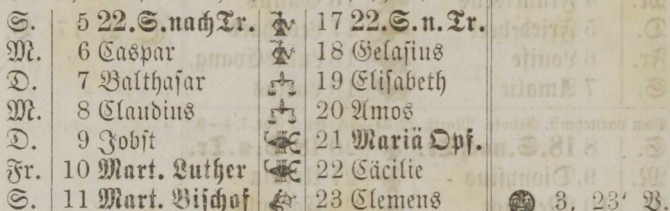 S. 5 22.S.nach Tr. 17 22.S.n.Tr.
M. 6 Caspar 18 Gelasius
D. 7 Balthasar 19 Elisabeth
M. 8 Claudius 20 Amos
D. 9 Jobst 21 Mariä Opf.
Fr. 10 Mart. Luther 22 Cäcilie
S. 11 Mart. Bischof 23 Clemens 3, 23' V.